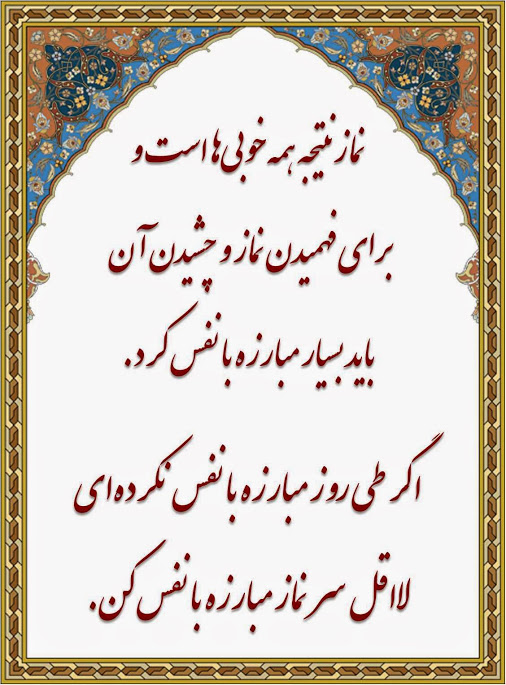 نماز نتیجه همه خوبی‌ها است و
برای فهمیدن نماز و چشیدن آن
باید بسیار مبارزه با نفس کرد.
اگر طی روز مبارزه با نفس نکرده‌ای
لااقل سر نماز مبارزه با نفس کن.